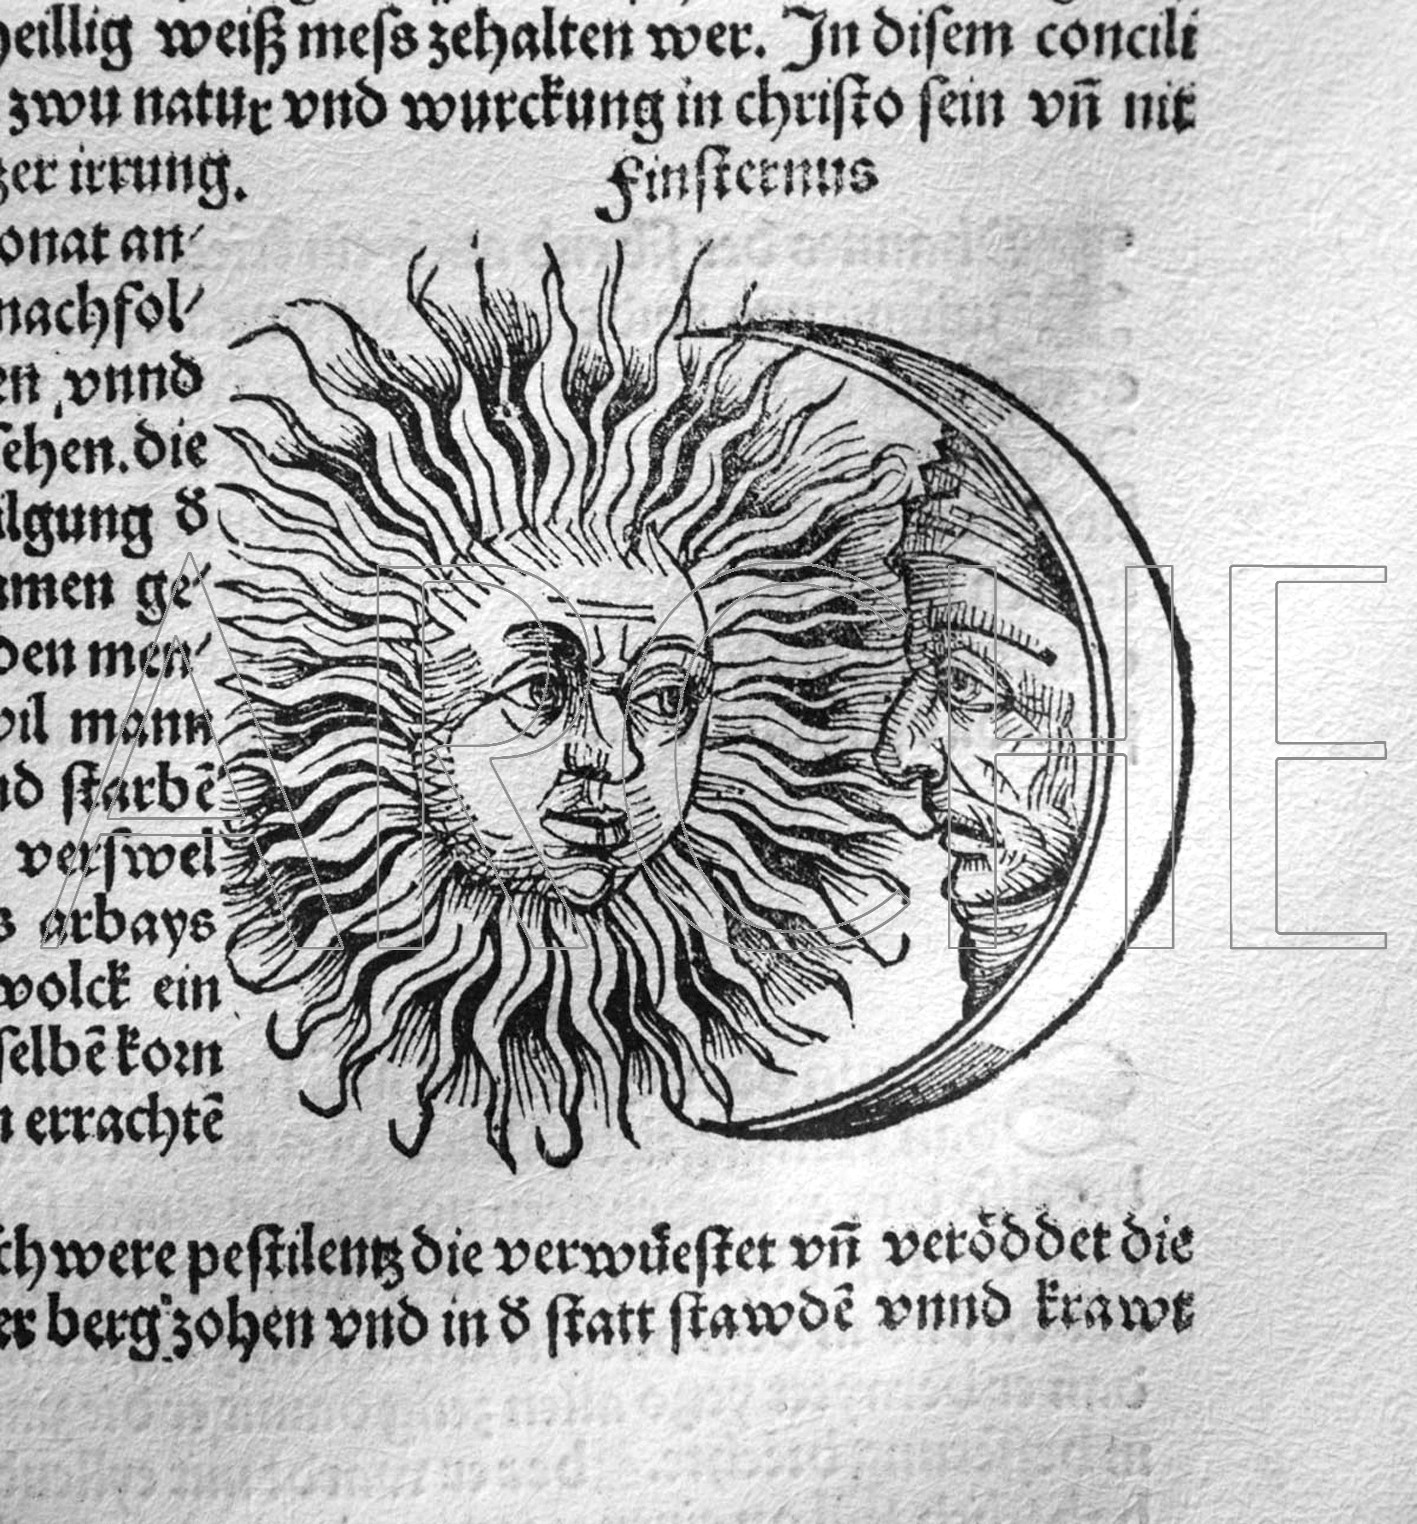 heillig weiß mess zehalten wer. In disem concili
zwu natur vnd wurckung in christo sein vn̄ nit
irrung.
Finsternus
an⸗
nachfol⸗
vnnd
sehen. die
ilgung đ
ge⸗
den men⸗
vil mann
starbē
verswel
arbays
wolck ein
selbē korn
errachtē
schwere pestilentz die verwüestet vn̄ veröddet die
berg zohen vnd in đ statt stawdē vnnd krawt
ARCHE